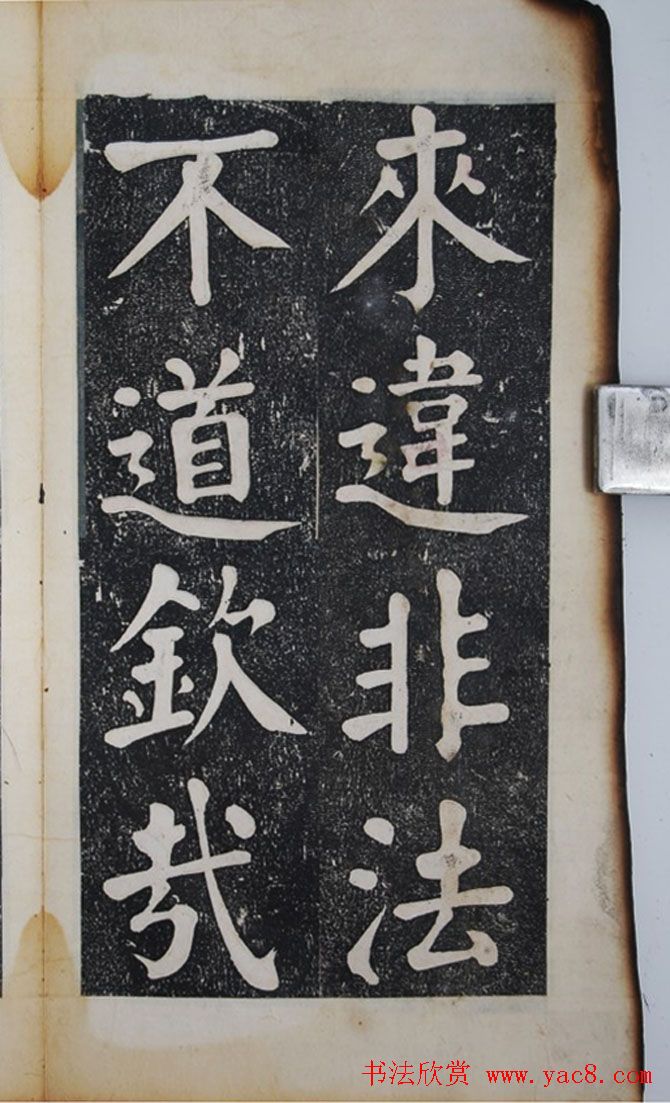 來違非法
不道欽㢤
书法欣赏 www.yac8.com